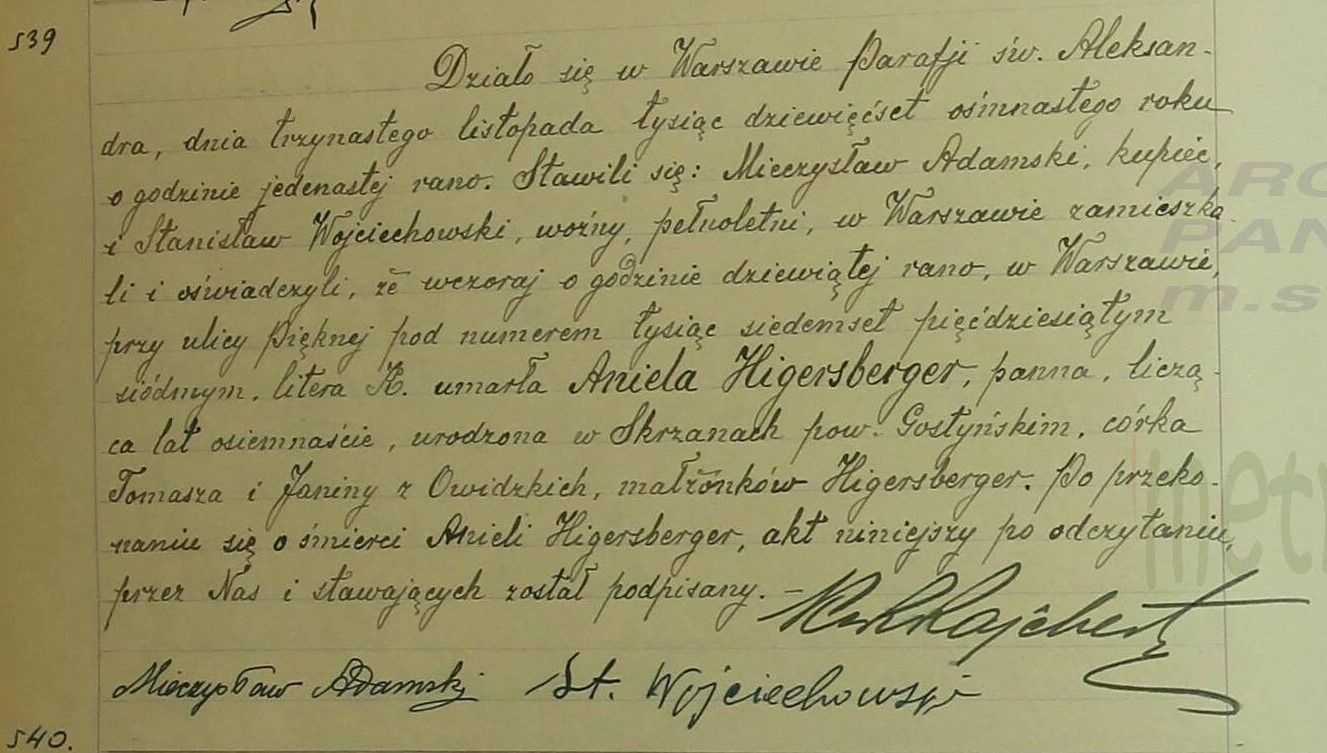 539
Działo się w Warszawie Parafji św. Aleksan-
dra, dnia trzynastego listopada tysiąc dziewięćset ośmnastego roku
o godzinie jedenastej rano. Stawili się: Mieczysław Adamski, kupiec,
i Stanisław Wojciechowski, woźny, pełnoletni, w Warszawie zamieszka-
li i oświadczyli, że wczoraj o godzinie dziewiątej rano, w Warszawie,
przy ulicy Pięknej pod numerem tysiąc siedemset pięćdziesiątym
siódmym, litera K. umarła Aniela Higersberger, panna, liczą-
ca lat osiemnaście, urodzona w Skrzanach pow. Gostyńskim, córka
Tomasza i Janiny z Owidzkich, małżonków Higersberger. Po przeko-
naniu się o śmierci Anieli Higersberger, akt niniejszy po odczytaniu,
przez Nas i stawających został podpisany. –
Mieczysław Adamski St. Wojciechowski
540.
ARC
PAN
m.s
metr